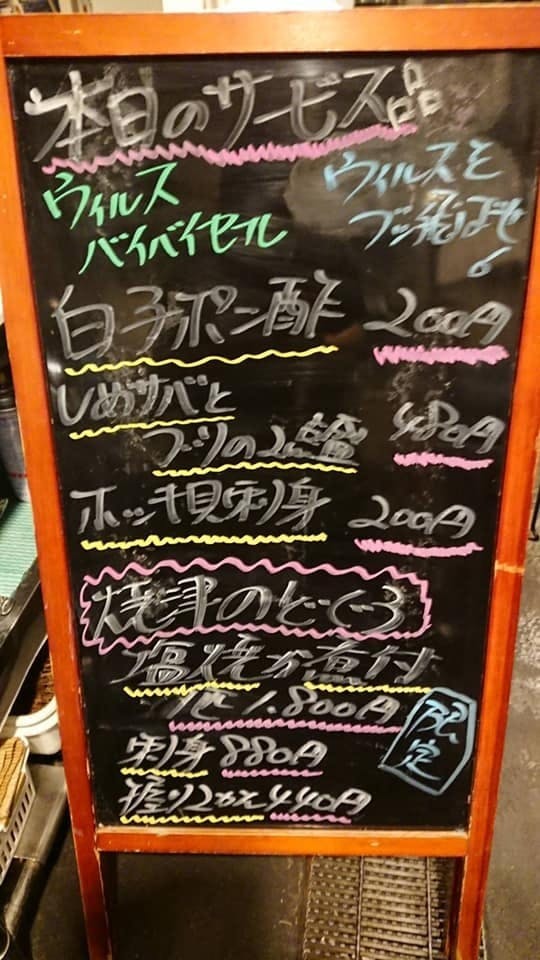 本日のサービス品
ウィルス
バイバイセール
ウィルスを
ブッ飛ばせ
白子ポン酢 200円
しめサバと
ブリの2点盛 480円
ホッキ貝刺身 200円
焼津のどくろ
塩焼か煮付
1.800円
限定
刺身 880円
握り2かん 440円